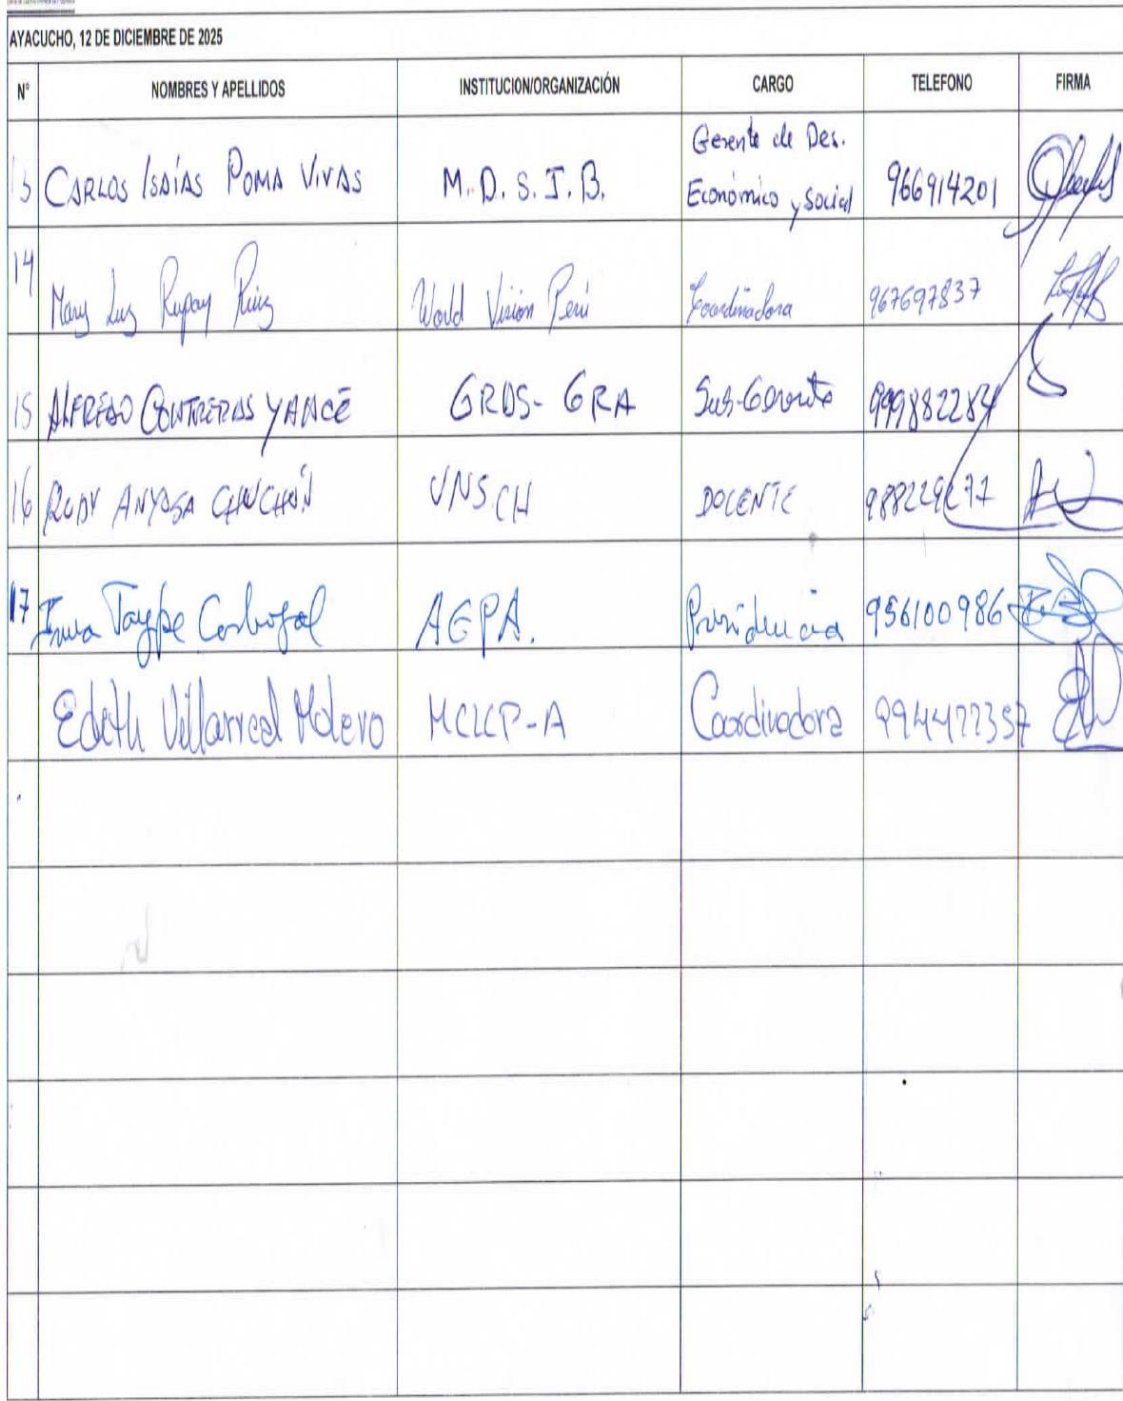 AYACUCHO, 12 DE DICIEMBRE DE 2025
N° NOMBRES Y APELLIDOS INSTITUCION/ORGANIZACIÓN CARGO TELEFONO FIRMA
13 CARLOS ISAÍAS POMA VIVAS M.D.S.J.B. Gerente de Des. Económico y Social 966914201
14 Mary Luz Rupay Ruiz World Vision Perú Coordinadora 967697837
15 ALFREDO CONTRERAS YANCÉ GRDS-GRA Sub-Gerente 999882284
16 RUDY ANYOSA CHUCHÓN UNSCH DOCENTE
17 Taype Carbajal AGPA. Presidencia 956100986
Edith Villarreal Molero MCLCP-A Coordinadora 994477357